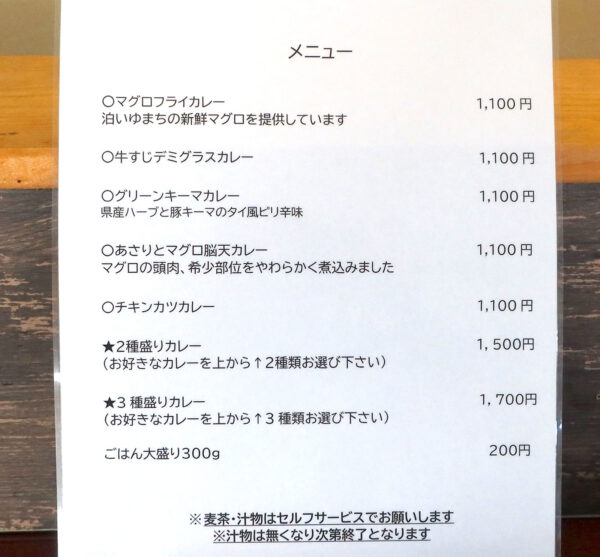 メニュー
〇マグロフライカレー 1,100円
泊いゆまちの新鮮マグロを提供しています
〇牛すじデミグラスカレー 1,100円
〇グリーンキーマカレー 1,100円
県産ハーブと豚キーマのタイ風ピリ辛味
〇あさりとマグロ脳天カレー 1,100円
マグロの頭肉、希少部位をやわらかく煮込みました
〇チキンカツカレー 1,100円
★2種盛りカレー 1,500円
（お好きなカレーを上から↑2種類お選び下さい）
★3種盛りカレー 1,700円
（お好きなカレーを上から↑3種類お選び下さい）
ごはん大盛り300g 200円
※麦茶・汁物はセルフサービスでお願いします
※汁物は無くなり次第終了となります